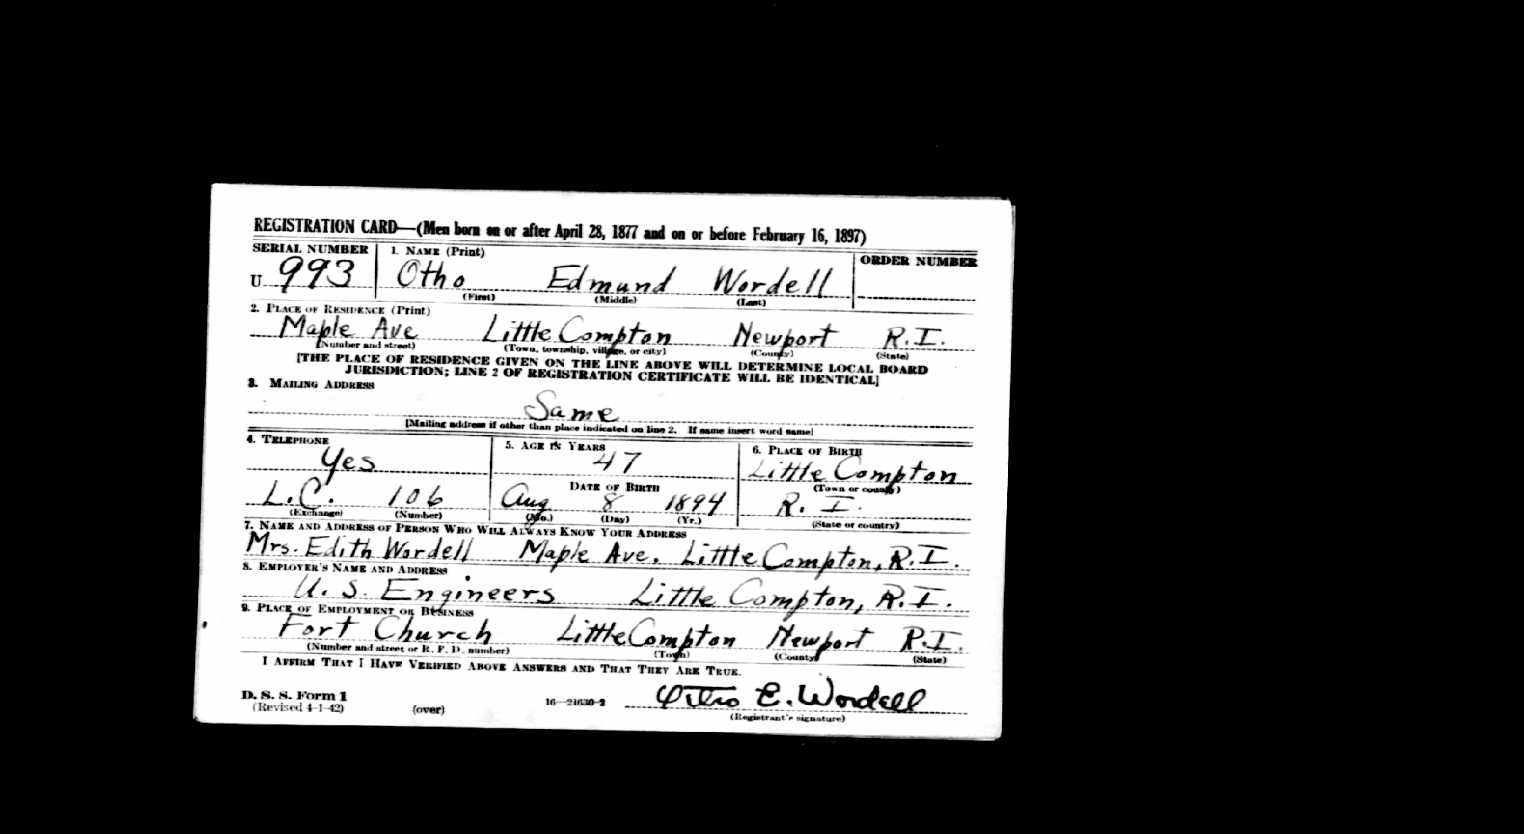 REGISTRATION CARD—(Men born on or after April 28, 1877 and on or before February 16, 1897)
SERIAL NUMBER 1. NAME (Print) ORDER NUMBER
U 993 Otho Edmund Wordell
(First) (Middle) (Last)
2. PLACE OF RESIDENCE (Print)
Maple Ave Little Compton Newport R.I.
(Number and street) (Town, township, village, or city) (County) (State)
[THE PLACE OF RESIDENCE GIVEN ON THE LINE ABOVE WILL DETERMINE LOCAL BOARD
JURISDICTION; LINE 2 OF REGISTRATION CERTIFICATE WILL BE IDENTICAL]
3. MAILING ADDRESS
Same
[Mailing address if other than place indicated on line 2. If same insert word same]
4. TELEPHONE 5. AGE IN YEARS 6. PLACE OF BIRTH
Yes 47 Little Compton
DATE OF BIRTH (Town or county)
L.C. 106 Aug 8 1894 R. I.
(Exchange) (Number) (Mo.) (Day) (Yr.) (State or country)
7. NAME AND ADDRESS OF PERSON WHO WILL ALWAYS KNOW YOUR ADDRESS
Mrs. Edith Wordell Maple Ave. Little Compton, R.I.
8. EMPLOYER'S NAME AND ADDRESS
U. S. Engineers Little Compton, R.I.
9. PLACE OF EMPLOYMENT OR BUSINESS
Fort Church Little Compton Newport R.I.
(Number and street or R. F. D. number) (Town) (County) (State)
I AFFIRM THAT I HAVE VERIFIED ABOVE ANSWERS AND THAT THEY ARE TRUE.
D. S. S. Form 1
(Revised 4-1-42) (over) 16—21630-2 Otho E. Wordell
(Registrant's signature)